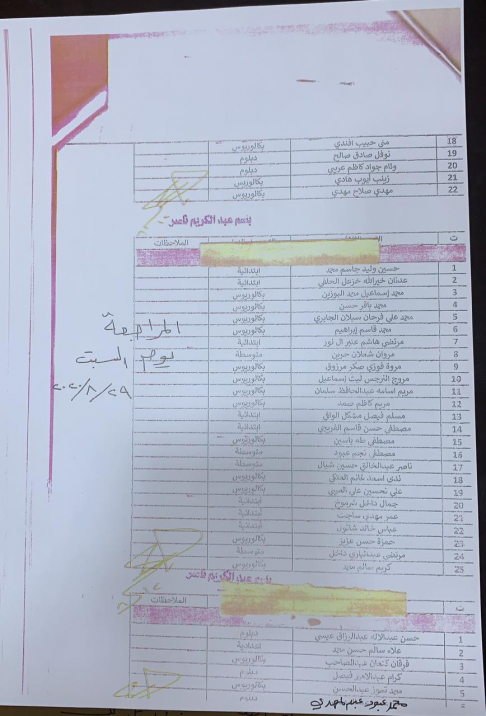 18 منى حبيب افندي بكالوريوس
19 نوفل صادق صالح دبلوم
20 وئام جواد كاظم عريبي دبلوم
21 زينب ايوب هادي بكالوريوس
22 مهدي صلاح مهدي بكالوريوس
عبد الكريم قاسم
ت الملاحظات
1 حسين وليد جاسم محمد ابتدائية
2 عدنان خيرالله خزعل ابتدائية
3 محمد إسماعيل محمد بكالوريوس
4 محمد باقر حسن بكالوريوس
5 محمد علي فرحان سبلان الجابري بكالوريوس
6 محمد قاسم إبراهيم بكالوريوس
7 مرتضى هاشم عنبر ال نور ابتدائية
8 مروان شعلان حربن متوسطة
9 مروة فوزي صكر مرزوق بكالوريوس
10 مروج النرجس ليث إسماعيل بكالوريوس
11 مريم اسامه عبدالحافظ سلمان بكالوريوس
12 مريم كاظم بكالوريوس
13 مسلم فيصل مشكل الوافي ابتدائية
14 مصطفى حسن قاسم ابتدائية
15 مصطفى طه ياسين بكالوريوس
16 مصطفى نجم عبود متوسطة
17 ناصر عبدالخالق حسين متوسطة
18 ندى اسعد غانم بكالوريوس
19 علي تحسين علي بكالوريوس
20 جمال داخل ابتدائية
21 عمر مهدي ابتدائية
22 عباس خالد ابتدائية
23 حمزة حسن عزيز بكالوريوس
24 مرتضى داخل متوسطة
25 كريم سالم محمد بكالوريوس
المراجعة
يوم السبت
٢٠٢٠/٨/٢٩
عبد الكريم قاسم
ت الملاحظات
1 حسن عبدالاله عبدالرزاق عيسى دبلوم
2 علاء سالم حسن محمد ابتدائية
3 فرقان كنعان عبدالصاحب بكالوريوس
4 كرام عبدالامير فيصل دبلوم
5 محمد عبدالحسن بكالوريوس
محمد عبود